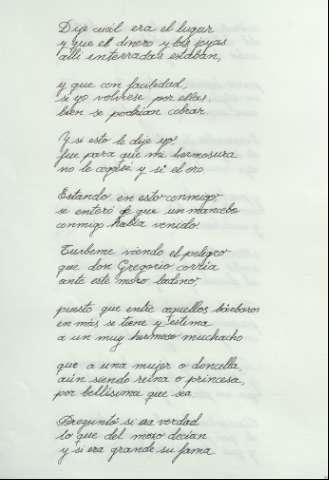 Dije cuál era el lugar
y que el dinero y las joyas
allí enterradas estaban,
y que con facilidad,
si yo volviese por ellas,
bien se podrían cobrar.
Y si esto le dije yo
fue para que mi hermosura
no le cogase y sí el oro.
Estando en esto conmigo,
se enteró de que un mancebo
conmigo había venido.
Turbeme viendo el peligro
que don Gregorio corría
ante este moro ladino,
puesto que entre aquellos bárbaros
en más se tiene y estima
a un muy hermoso muchacho
que a una mujer o doncella,
aún siendo reina o princesa,
por bellísima que sea.
Preguntó si era verdad
lo que del mozo decían
y si era grande su fama.